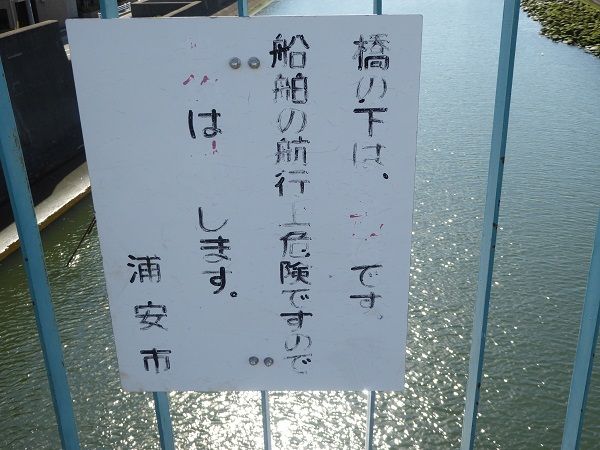 橋の下は、です。
船舶の航行上危険ですので
はします。
浦安市